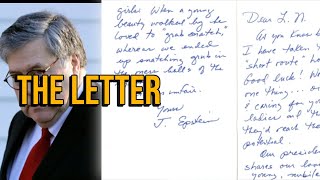 THE LETTER
girls. When a young
beauty walked by he
loved to "grab snatch,"
whereas we ended
up snatching grub in
the mess halls of the
unfair.
Yours
J. Epstein
Dear L. N.
As you know b
I have taken t
"short route" ho
Good luck! We
one thing...
caring for yo
ladies
they'd reach the
potential.
Our presiden
shares our lov
young, nubile